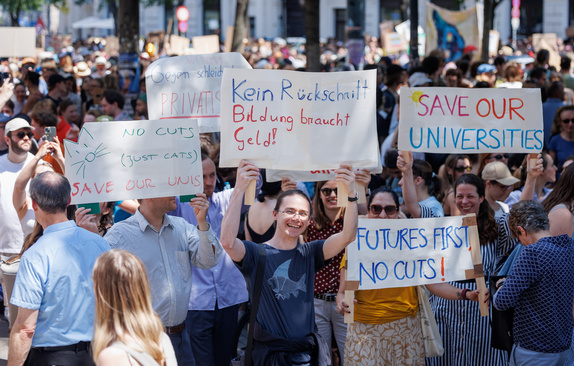 Gegen schleich
PRIVATIS
Kein Rückschritt
Bildung braucht
Geld!
SAVE OUR
UNIVERSITIES
NO CUTS
(JUST CATS)
SAVE OUR UNIS
FUTURES FIRST
NO CUTS!